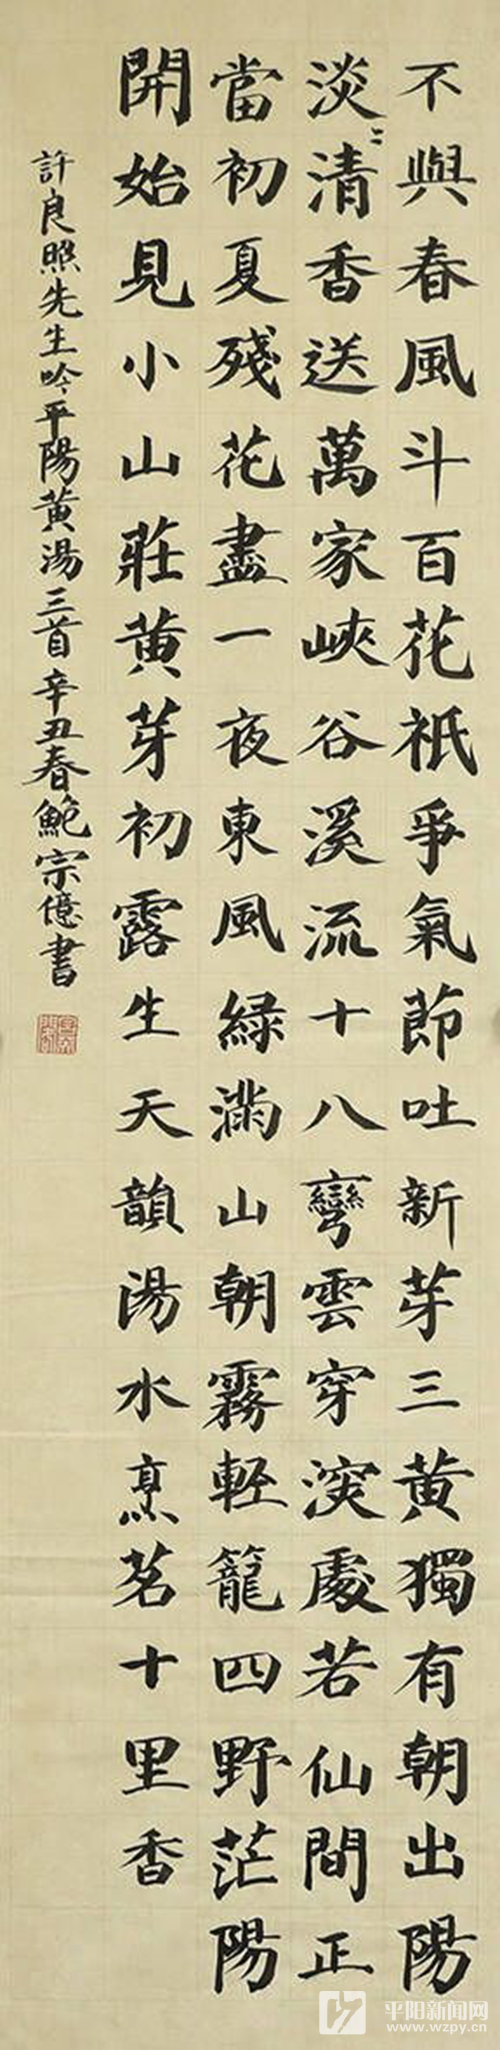 不與春風斗百花祇爭氣節吐新芽三黄獨有朝出陽
淡〻清香送萬家峽谷溪流十八彎雲穿深處若仙間正
當初夏殘花盡一夜東風緑滿山朝霧輕籠四野茫陽
開始見小山莊黄芽初露生天韻湯水烹茗十里香
許良照先生吟平陽黄湯三首辛丑春鮑宗億書
平阳新闻网
www.wzpy.cn